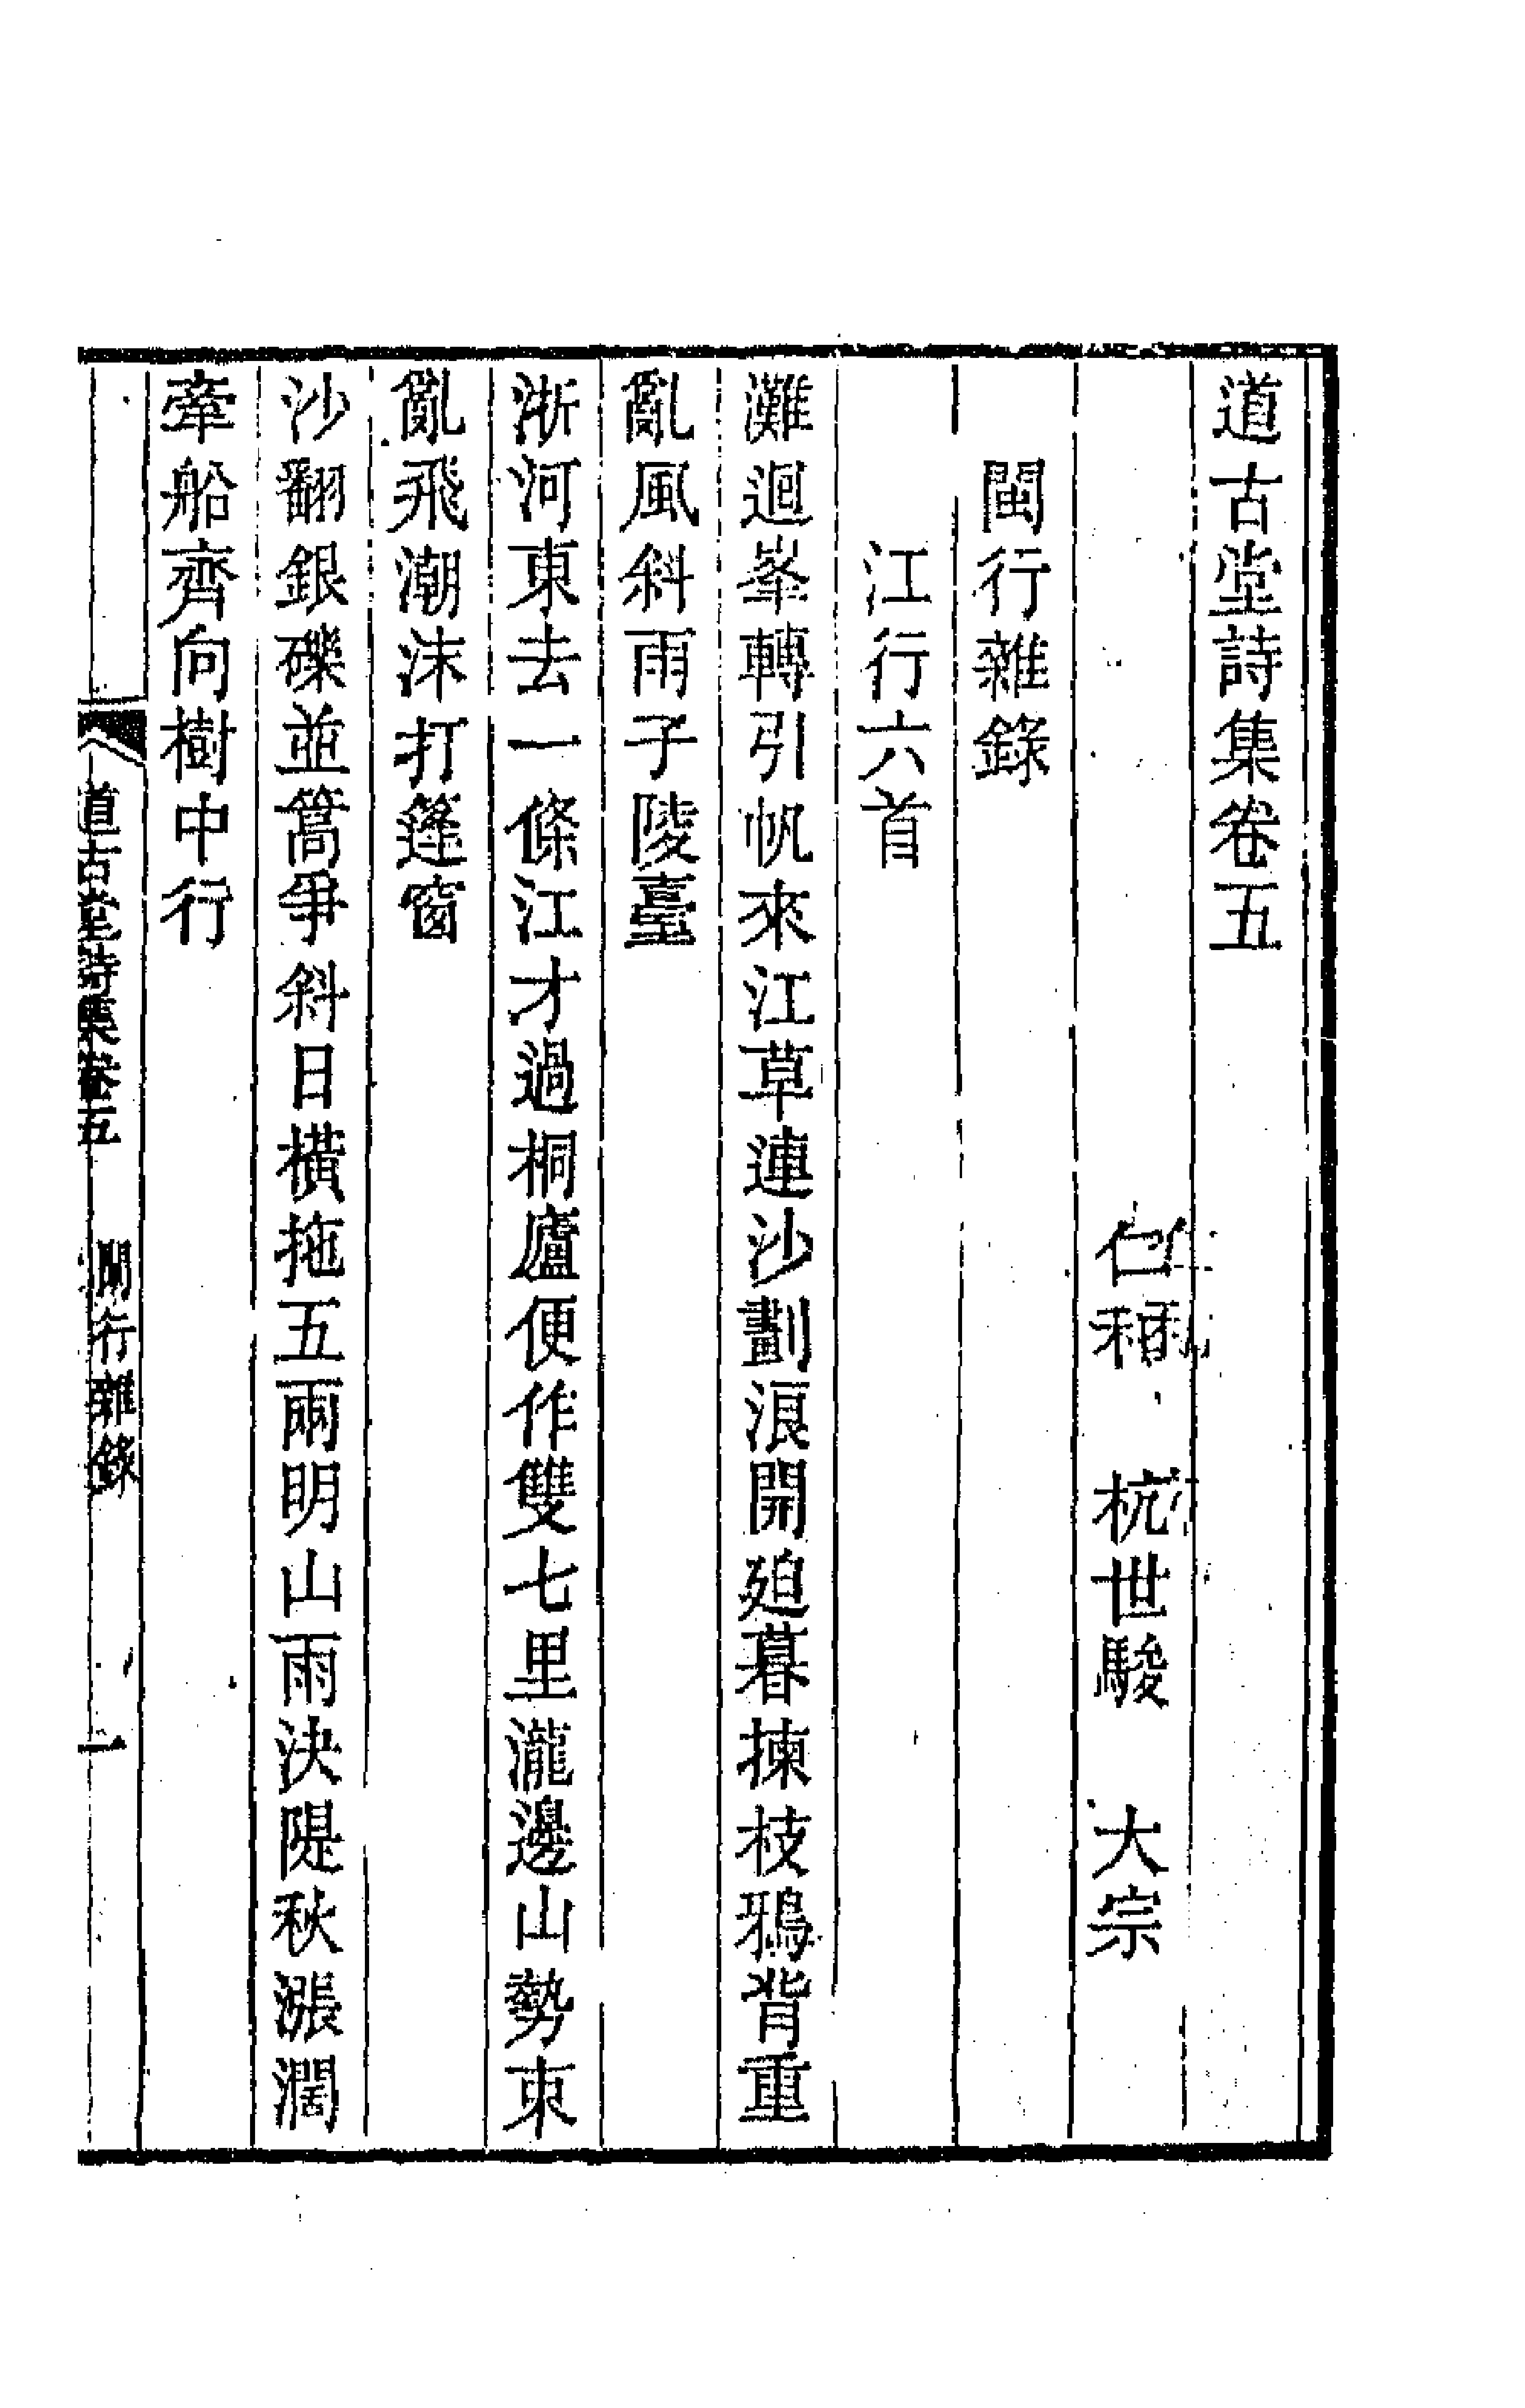 道古堂詩集卷五
仁和 杭世駿 大宗
閩行雜錄
江行六首
灘迴峯轉引帆來江草連沙劃浪開廹暮揀枝鴉背重
亂風斜雨子陵臺
淛河東去一條江才過桐廬便作雙七里瀧邊山勢束
亂飛潮沫打篷窗
沙翻銀礫並篙爭斜日橫拖五兩明山雨決隄秋漲濶
牽船齊向樹中行
道古堂詩集卷五 閩行雜錄 一